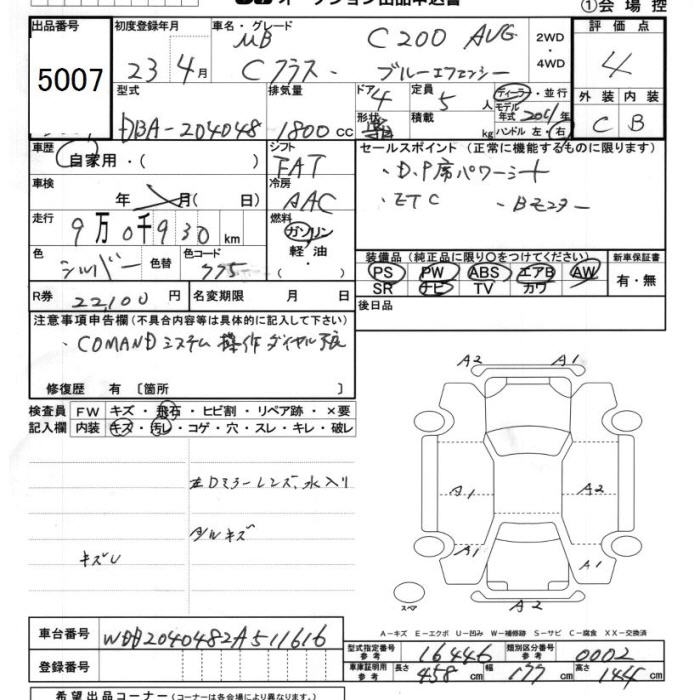 オークション出品申込書
①会場控
出品番号
5007
初度登録年月
23年4月
車名・グレード
MB C200 AVG
Cクラス・ブルーエフェンシー
2WD
・
4WD
評価点
4
外装 内装
C B
型式
DBA-204048
排気量
1800cc
ドア
4
形状
定員
5人
積載
kg
ディーラー・並行
モデル年式 2011年
ハンドル 左・右
車歴
自家用・( )
車検
年 月( 日)
走行
9万0千930km
色
シルバー
色替
色コード
775
シフト
FAT
冷房
AAC
燃料
ガソリン
・
軽油
・
( )
セールスポイント (正常に機能するものに限ります)
・D.P席パワーシート
・ETC ・Bモニター
装備品 (純正品に限り〇をつけてください)
PS PW ABS エアB AW
SR ナビ TV カワ
新車保証書
有・無
R券
22,100円
名変期限 月 日
後日品
注意事項申告欄(不具合内容等は具体的に記入して下さい)
・COMANDシステム 操作ダイヤル不良
修復歴 有 〔箇所 〕
検査員 FW キズ・飛石・ヒビ割・リペア跡・×要
記入欄 内装 キズ・汚レ・コゲ・穴・スレ・キレ・破レ
左Dミラーレンズ水入り
タルキズ
キズU
A2 A1
A1 A2
A1 A1
A2
スペア
A-キズ E-エクボ U-凹み W-補修跡 S-サビ C-腐食 XX-交換済
車台番号
WDD2040482A511616
登録番号
型式指定番号 参考
16446
類別区分番号 参考
0002
車庫証明用 参考
長さ 458cm
幅 177cm
高さ 144cm
希望出品コーナー(コーナーは各会場により異なります)